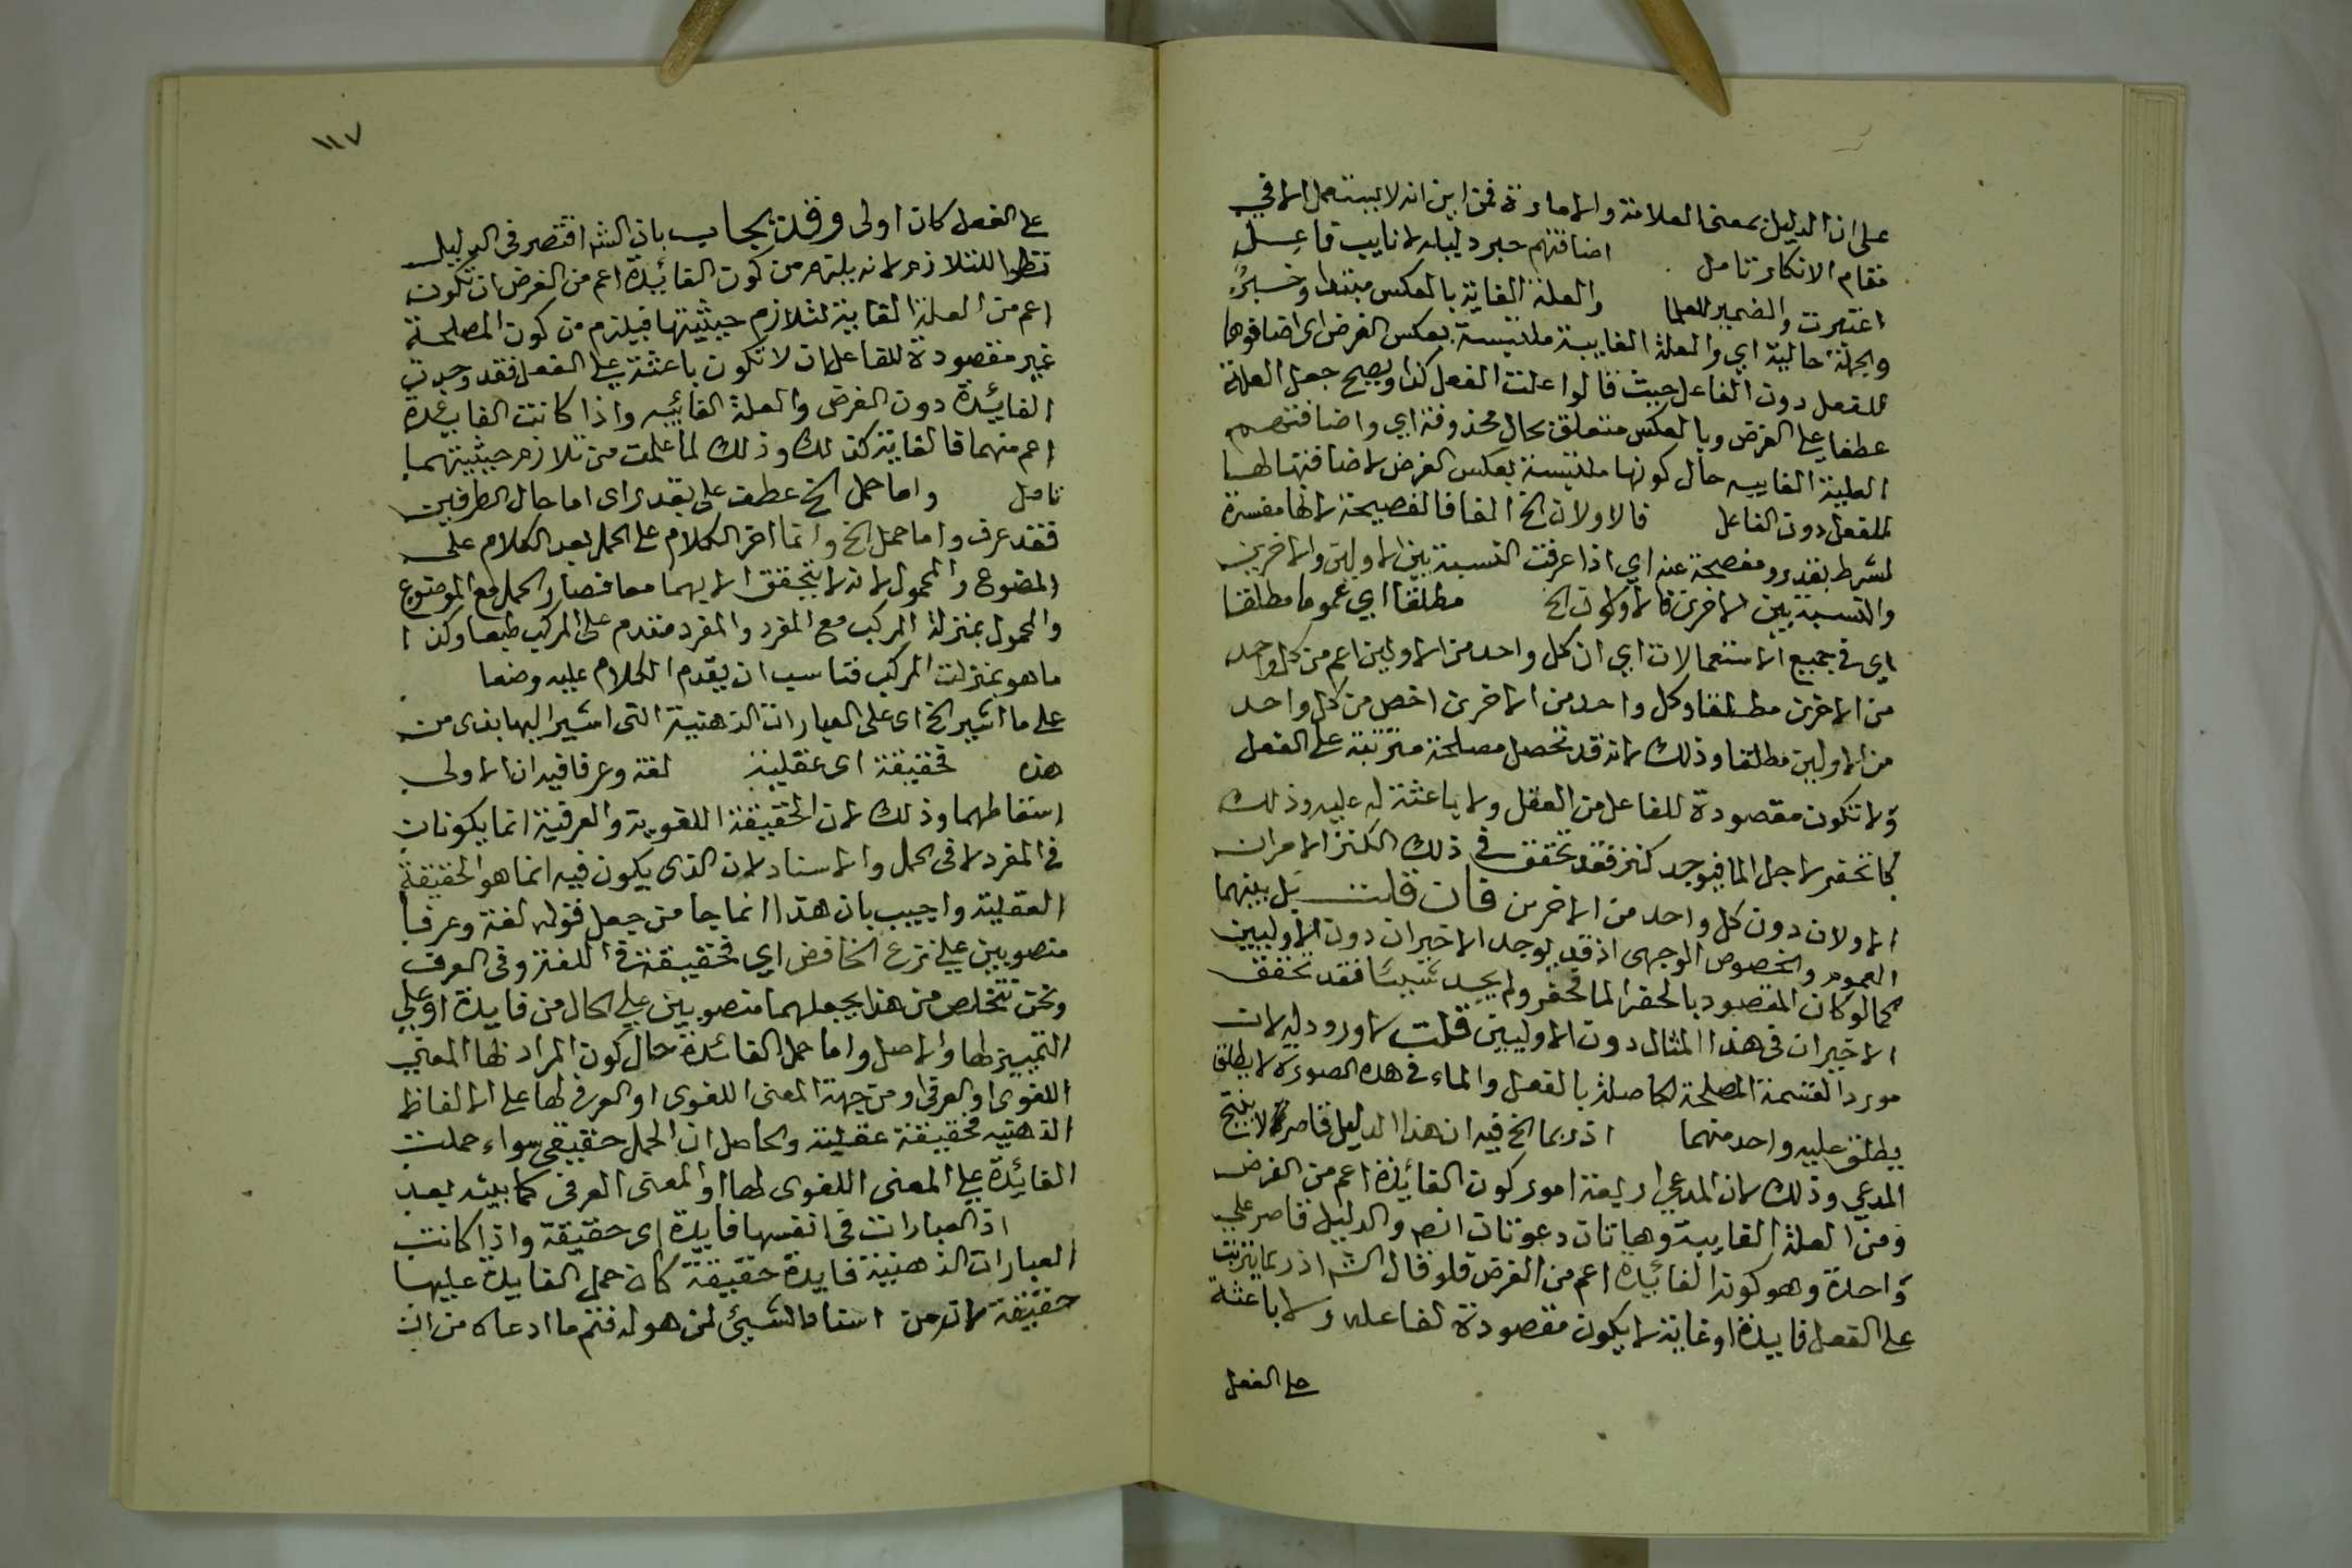 على ان الدليل بمعنى العلامة والامارة فمن اين انه لا يستعمل الا في
مقام الانكار تامل اضافتهم خبر د ليابه لا نايب فاعل
اعتبرت والضمير للعلما والعلة الغاية بالعكس مبتدا وخبرُه
والجملة حالية اي والعلة الغايية ملتبسة بعكس الغرض اى اضافوها
للفعل دون الفاعل حيث قالوا علت الفعل كذا ويصح جعل العلة
عطفا على الغرض وبالعكس متعلق بحال محذوفة اي واضافتهم
العلية الغاييه حال كونها ملتبسة بعكس الغرض لاضافتها لها
للفعل دون الفاعل فالاولان الخ الفا فا الفصيحة لانها مفسرة
لشرط بقدر ومفصحة عنه اي اذا عرفت النسبة بين الاولين والاخرين
والنسبة بين الاخرين فالاولان الخ مطلقا اي عموما مطلقا
اي في جميع الاستعمالات اي ان كل واحد من الاولين اعم من كل واحد
من الاخرين مطلقا وكل واحد من الاخرين اخص من كل واحد
من الاولين مطلقا وذلك لانه قد تحصل مصلحة مترتبة على الفعل
ولا تكون مقصودة للفاعل من الفعل ولا باعثة له عليه وذلك
كما تحفر لاجل الما فيوجد كنز فقد تحقق في ذلك الكنز الامران
الاولان دون كل واحد من الاخرين فان قلت بل بينهما
العموم والخصوص الوجهى اذ قد يوجد الاخيران دون الاوليين
كما لو كان المقصود بالحفر الما فحفر ولم يجد شيئا فقد تحقق
الاخيران في هذا المثال دون الاوليين قلت لا ورود له لان
مورد القسمة المصلحة الحاصلة بالفعل والماء في هذه الصورة لا يطلق
يطلق عليه واحد منهما اذ ربما الخ فيه ان هذا الدليل قاصر لا ينتج
المدعي وذلك لان المدعي اربعة امور كون الفائدة اعم من الغرض
ومن العلة الغايية وهاتان دعوتان انصر والدليل قاصر على
واحدة وهو كون الفائدة اعم من الغرض فلو قال الشه اذ ربما يترتب
على الفعل فايدة او غاية لا يكون مقصودة لفاعله ولا باعثة
على الفعل
١١٧
على الفعل كان اولى وقد يجاب بان الشه اقتصر في الدليل
نظرا للتلازم لانه يلزم من كون الفائدة اعم من الغرض ان تكون
اعم من العلة الغاية لتلازم حيثيتها فيلزم من كون المصلحة
غير مقصودة للفاعل ان لا تكون باعثة على الفعل فقد وجدت
الفائدة دون الغرض والعلة الغائيه واذا كانت الفائدة
اعم منهما فالغاية كذلك وذلك لما علمت من تلازم حيثيتهما
تامل واما حمل الخ عطف على بقدر اى اما حال الطرفين
فقد عرف واما حمل الخ وانما اخر الكلام على الحمل بعد الكلام على
الموضوع والمحمول لانه لا يتحقق الا بهما معا فصار الحمل مع الموضوع
والمحمول بمنزلة المركب مع المفرد والمفرد مقدم على المركب طبعا وكذا
ما هو بمنزلت المركب فناسب ان يقدم الكلام عليه وضعا
على ما اشير الخ اى على العبارات الذهنية التى اشير اليها بقدى من
هذه فحقيقة اى عقلية لغة وعرفا فيه ان الاولى
اسقاطهما وذلك لان الحقيقة اللغوية والعرفية انما يكونان
في المفرد لا في الحمل والاسناد لان الذى يكون فيه انما هو الحقيقة
العقلية واجيب بان هذا انما جا من جعل قوله لغة وعرفا
منصوبين على نزع الخافض اي فحقيقة في اللغة وفي العرف
ونحن نتخلص من هذا بجعلهما منصوبين على الحال من فايدة او على
التمييز لها والاصل واما حمل الفائدة حال كون المراد بها المعنى
اللغوى او العرفي او من جهة المعنى اللغوى او العرفي لها على الالفاظ
الذهنيه فحقيقة عقلية والحاصل ان الحمل حقيقي سواء حملت
الفائدة على المعنى اللغوى لها او المعنى العرفى كما بينه بعد
اذ العبارات في انفسها فايدة اى حقيقة واذا كانت
العبارات الذهنية فايدة حقيقة كان حمل الفايدة عليها
حقيقة لانه من اسناد الشيئ لمن هو له فتم ما ادعاه من ان